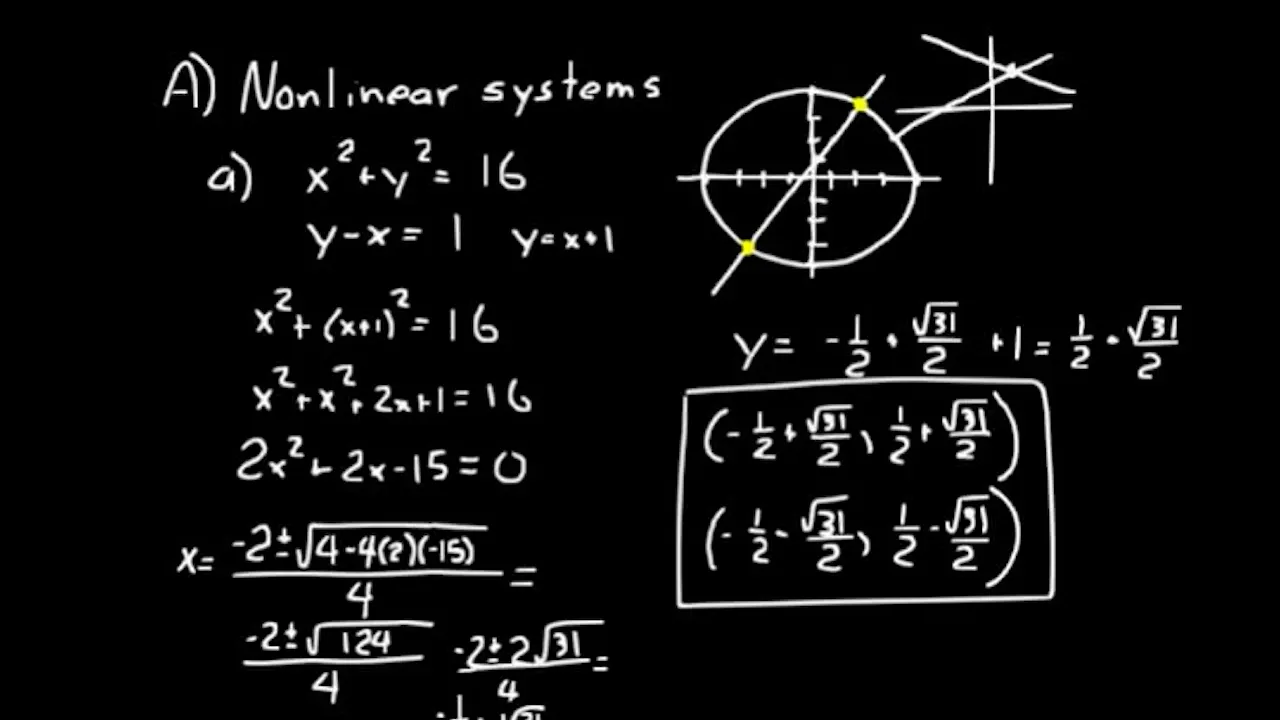 A) Nonlinear systems
a) x² + y² = 16
y - x = 1 y = x + 1
x² + (x+1)² = 16
x² + x² + 2x + 1 = 16
2x² + 2x - 15 = 0
x = (-2 ± √(4 - 4(2)(-15)))/4 =
(-2 ± √124)/4 (-2 ± 2√31)/4 =
y = -1/2 · √31/2 + 1 = 1/2 · √31/2
(-1/2 + √31/2, 1/2 + √31/2)
(-1/2 - √31/2, 1/2 - √31/2)